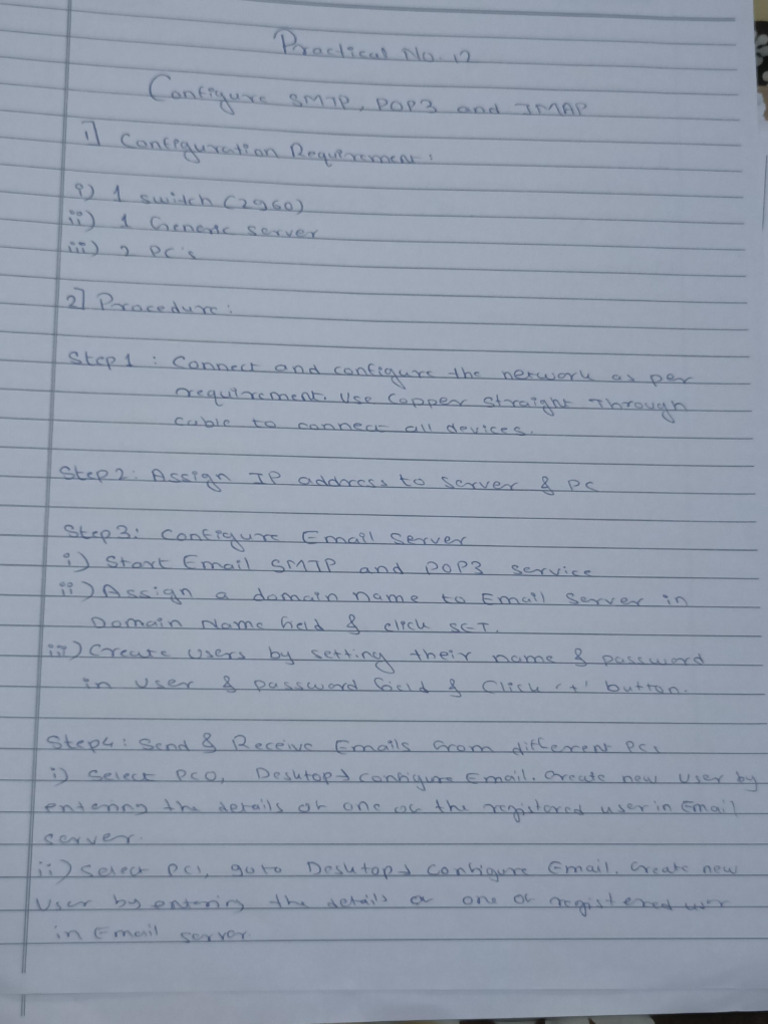 Practical No. 12
Configure SMTP, POP3 and IMAP
1] Configuration Requirement:
i) 1 switch (2960)
ii) 1 Generic server
iii) 2 PC's
2] Procedure:
Step 1: Connect and configure the network as per
requirement. Use Copper Straight Through
cable to connect all devices.
Step 2: Assign IP address to Server & PC
Step 3: Configure Email Server
i) Start Email SMTP and POP3 service
ii) Assign a domain name to Email Server in
Domain Name field & click SET.
iii) Create users by setting their name & password
in user & password field & Click '+' button.
Step 4: Send & Receive Emails from different PCs
i) Select PC0, Desktop → configure Email. Create new user by
entering the details of one of the registered user in Email
server.
ii) Select PC1, go to Desktop → Configure Email. Create new
User by entering the details of one of registered user
in Email server